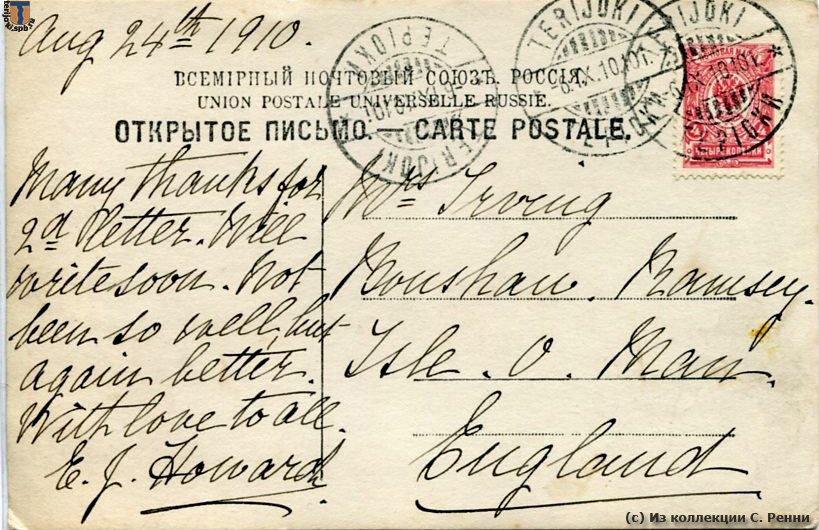 Aug 24th 1910.
ВСЕМІРНЫЙ ПОЧТОВЫЙ СОЮЗЪ. РОССІЯ.
UNION POSTALE UNIVERSELLE RUSSIE.
ОТКРЫТОЕ ПИСЬМО. — CARTE POSTALE.
Many thanks for
2d letter. Will
write soon. Not
been so well, but
again better.
With love to all.
E. J. Howard
Mrs Irving
Ramsey.
Isle. O. Man.
England
TERIJOKI
ТЕРІОКИ
TERIJOKI
ЧЕТЫРЕ КОПѢЙКИ
(c) Из коллекции С. Ренни